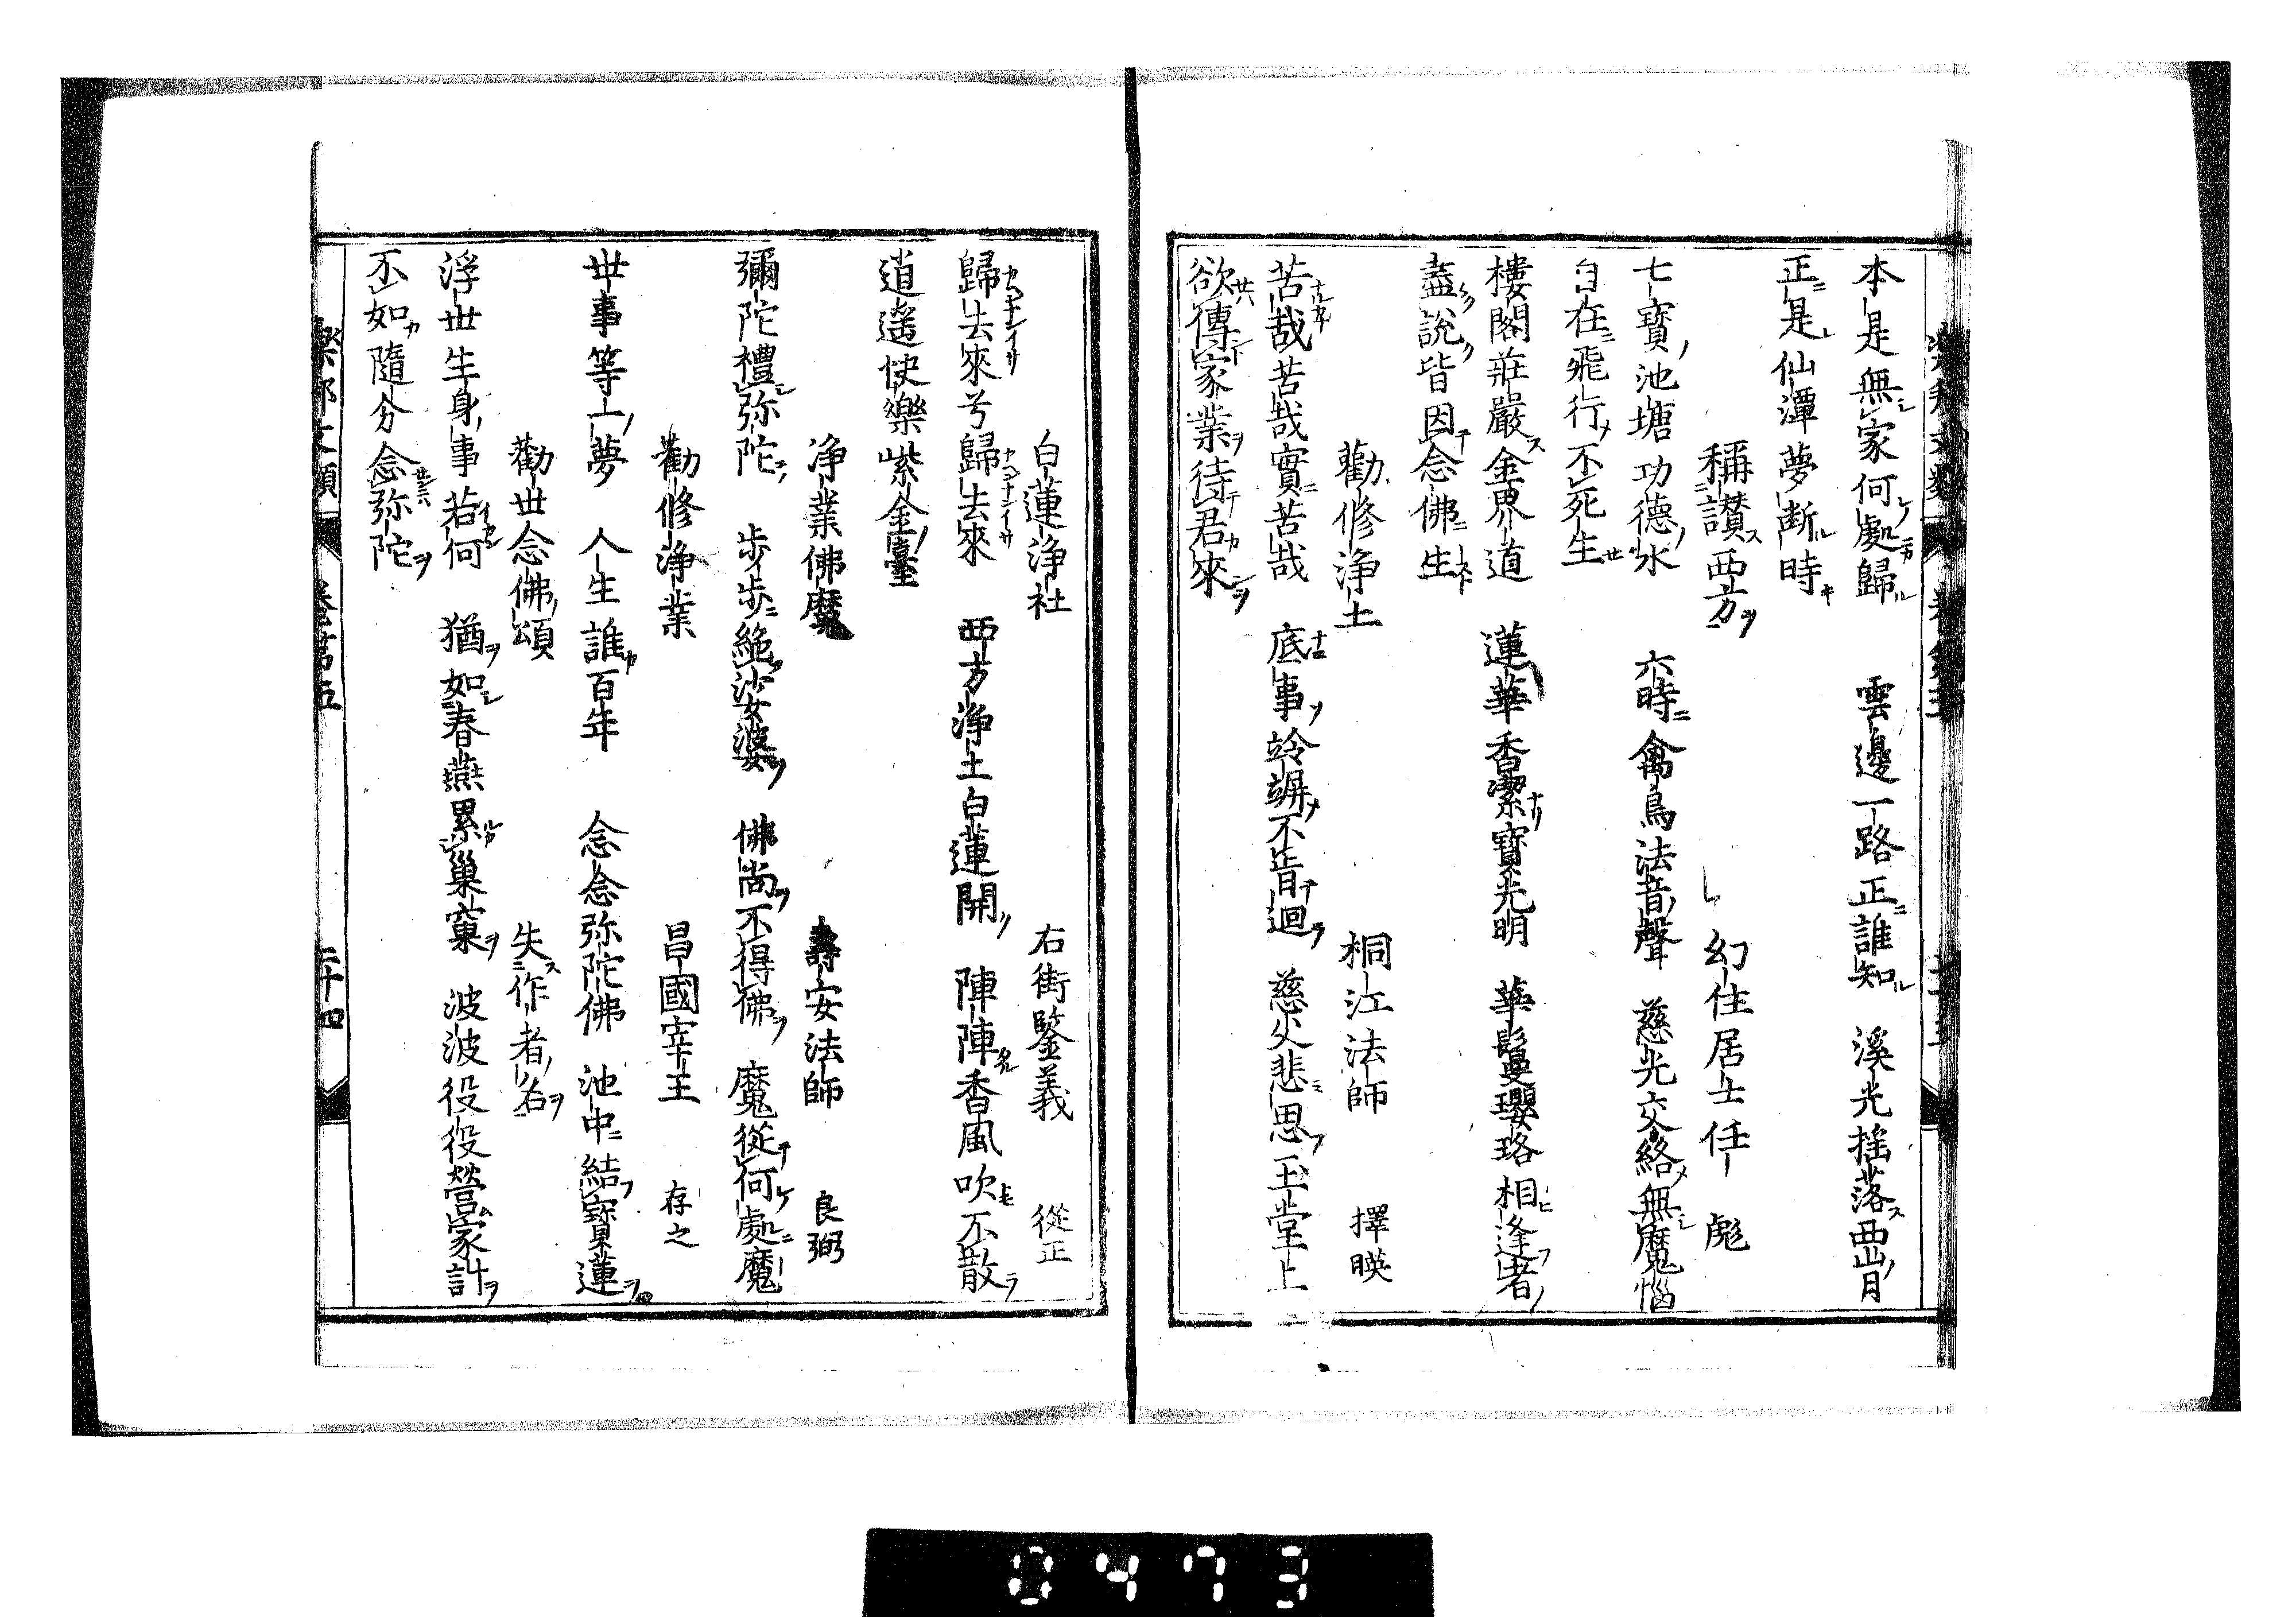 本是無家何處歸　雲邊一路正誰知　溪光搖落西山月
正是仙潭夢斷時
稱讃西方　幻住居士任　彪
七寶池塘功德水　六時禽鳥法音聲　慈光交絡無魔惱
自在飛行不死生
樓閣莊嚴金界道　蓮華香潔寶光明　華鬘瓔珞相逢者
盡說皆因念佛生
勸修淨土　桐江法師　擇暎
苦哉苦哉實苦哉　底事竛竮不肯迴　慈父悲思玉堂上
欲傳家業待君來
白蓮淨社　右街鑒義　從正
歸去來兮歸去來　西方淨土白蓮開　陣陣香風吹不散
逍遙快樂紫金臺
淨業佛魔　壽安法師　良弼
彌陀禮弥陀　步步絶娑婆　佛尚不得佛　魔從何處魔
勸修淨業　昌國宰王　存之
世事等一夢　人生誰百年　念念弥陀佛　池中結寶蓮
勸世念佛頌　失作者名
浮世生身事若何　猶如春燕累巢窠　波波役役營家計
不如隨分念弥陀
樂邦文類　卷第五　二十四
0473